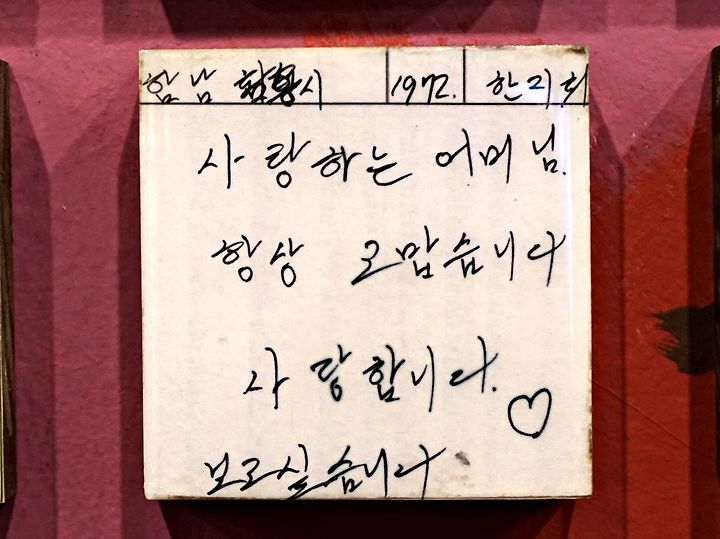 함남 함흥시 1972. 한지희
사랑하는 어머님.
항상 고맙습니다
사랑합니다. ♡
보고싶습니다